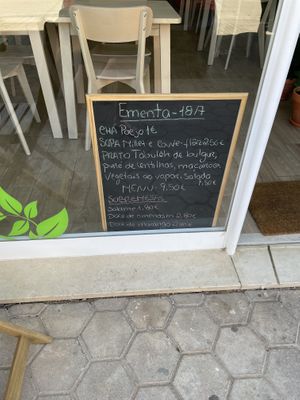 Ementa - 18/7
CHÁ Poejo 1€
SOPA Millet e Couve-flor 2,50€
PRATO Tabouleh de bulgur,
puré de lentilhas, macarrão
Vegetais ao vapor, Salada
7,50€
MENU - 9,50€
SOBREMESA
Salame 1,80€
Doce de amêndoa 2,80€
Doce de